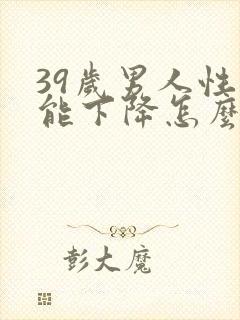 39歲男人性
能下降怎麼
彭大魔